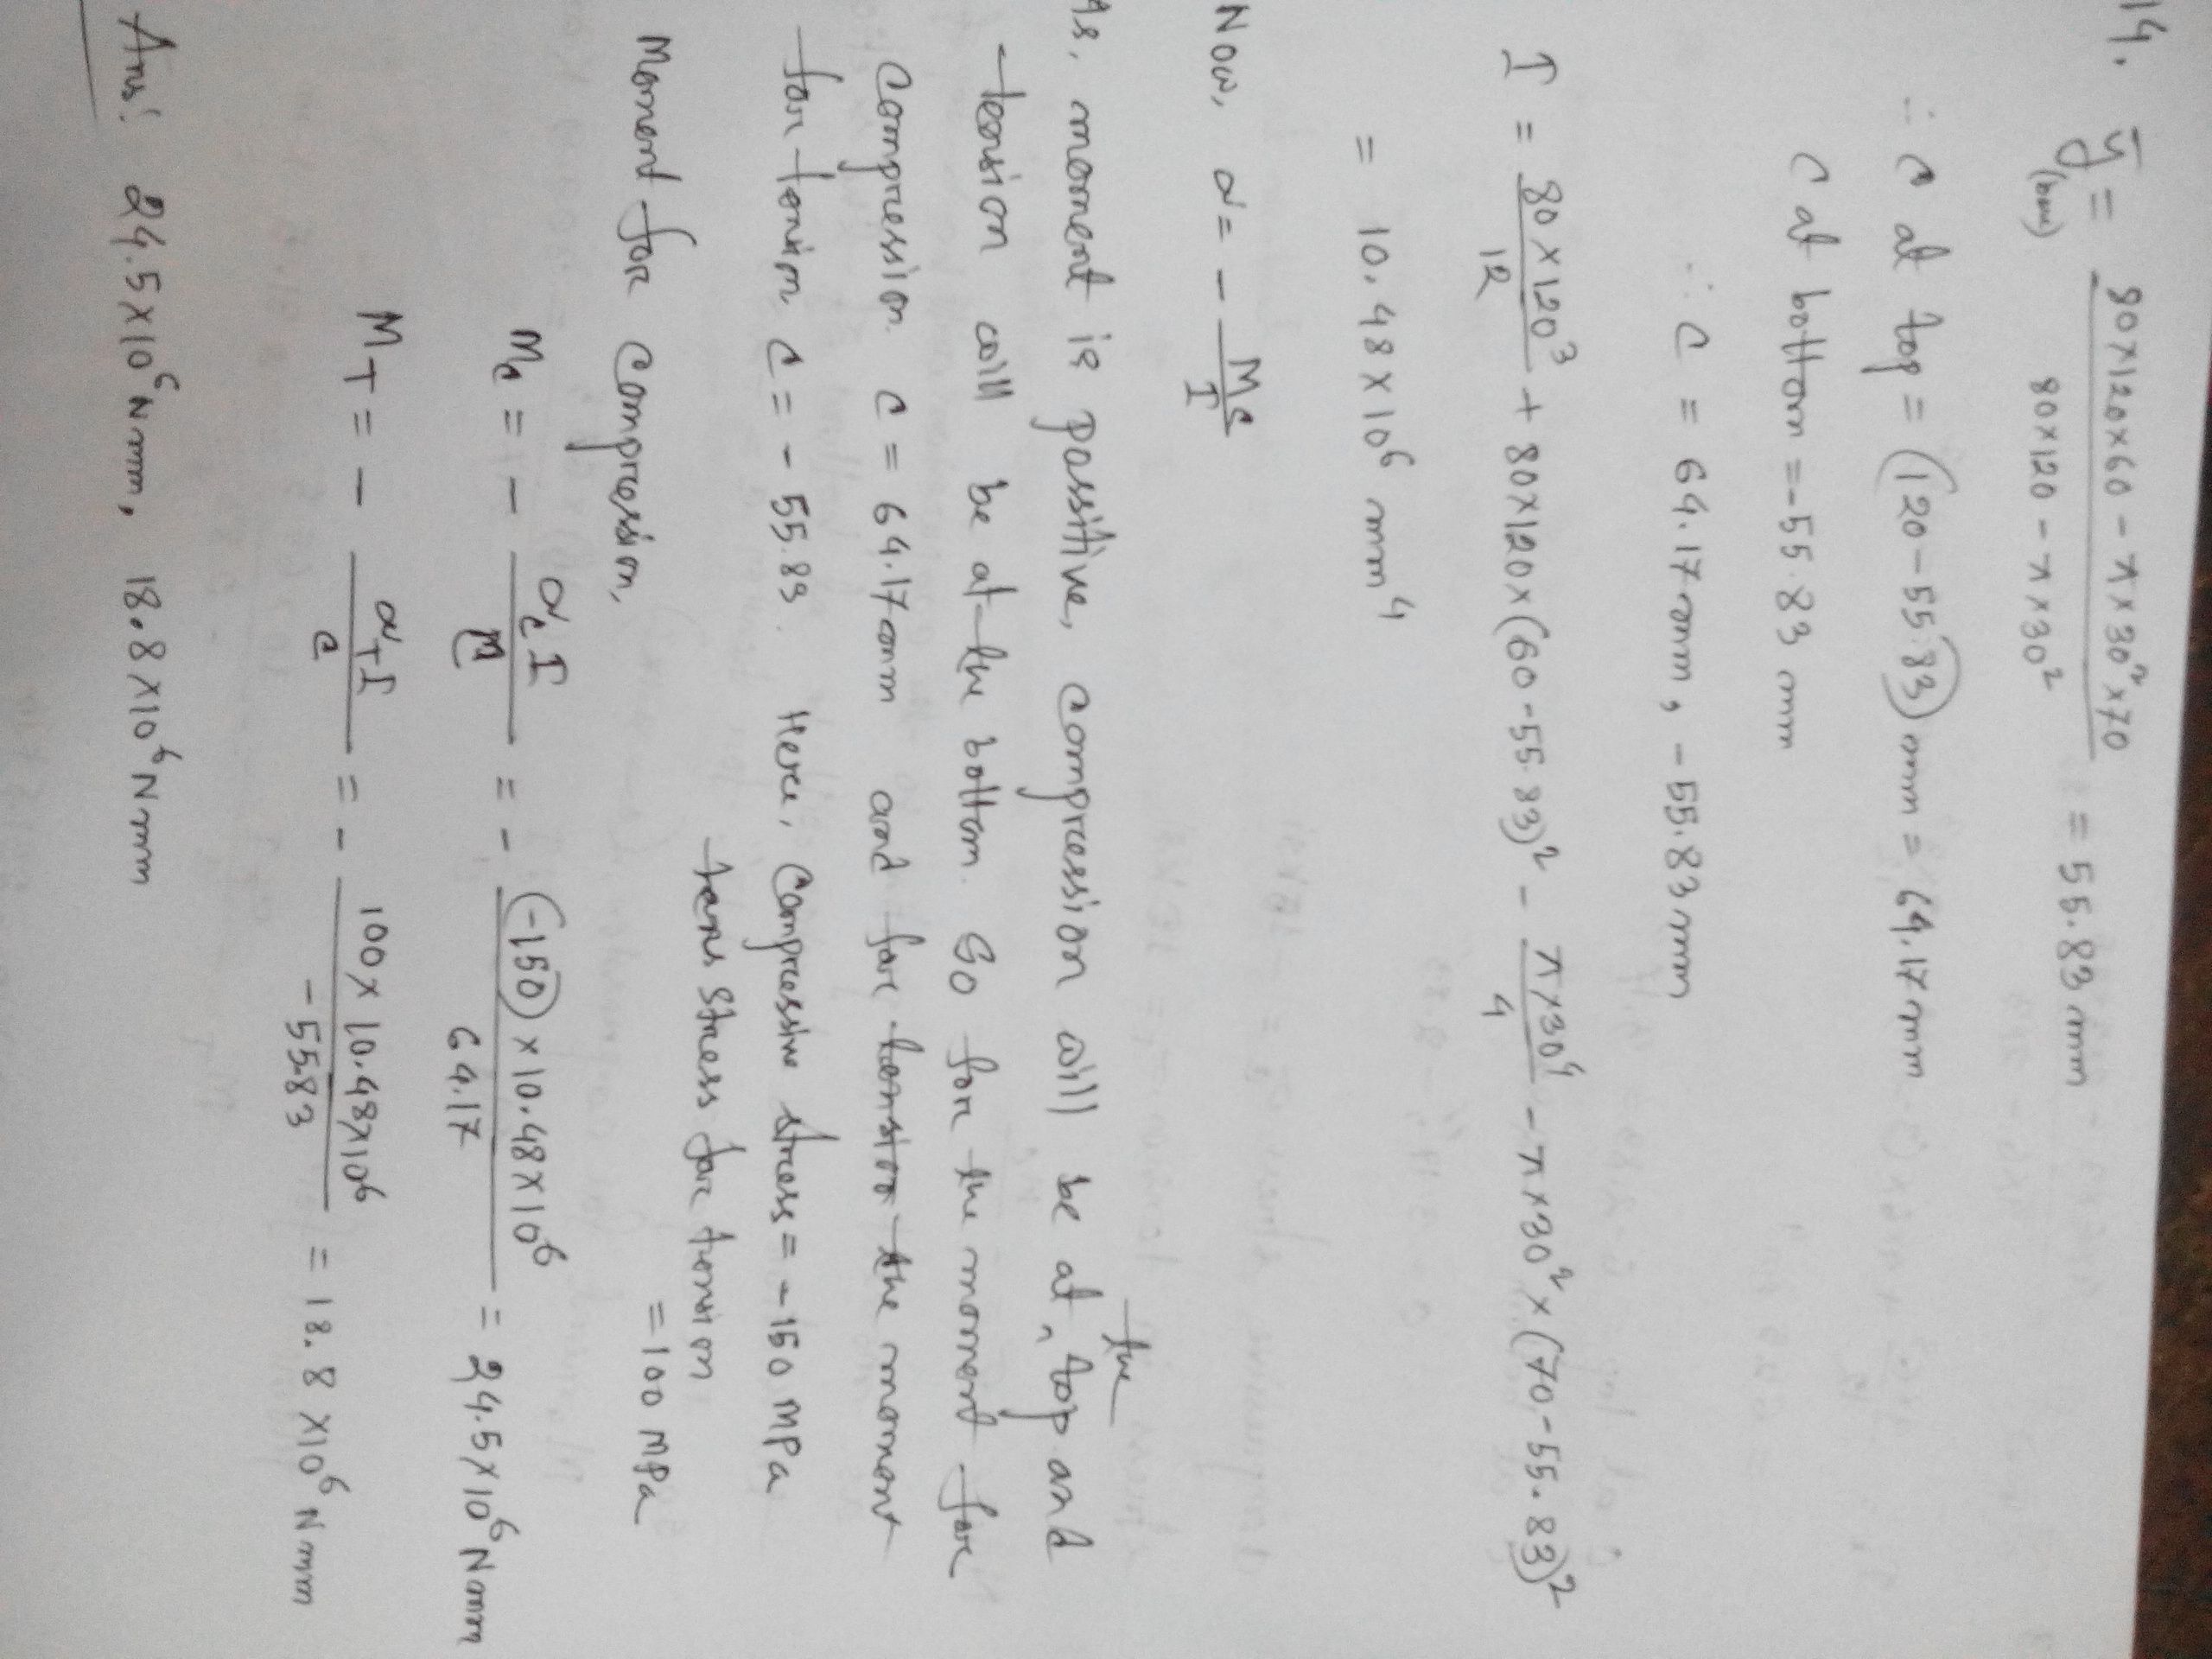 14. ȳ(base) = (80×120×60 - π×30²×70) / (80×120 - π×30²) = 55.83 mm
∴ c at top = (120-55.83) mm = 64.17 mm
c at bottom = -55.83 mm
∴ c = 64.17 mm, -55.83 mm
I = 80×120³/12 + 80×120×(60-55.83)² - π×30⁴/4 - π×30²×(70-55.83)²
= 10.48×10⁶ mm⁴
Now, σ = - Mc/I
As, moment is possitive, compression will be at the top and
tension will be at the bottom. So for the moment for
compression c = 64.17 mm and for tension the moment
for tension c = -55.83. Here, compressive stress = -150 MPa
tens stress for tension
= 100 MPa
Moment for compression,
Mc = - σcI/c = - (-150)×10.48×10⁶/64.17 = 24.5×10⁶ Nmm
MT = - σTI/c = - 100×10.48×10⁶/-55.83 = 18.8×10⁶ Nmm
Ans: 24.5×10⁶ Nmm, 18.8×10⁶ Nmm